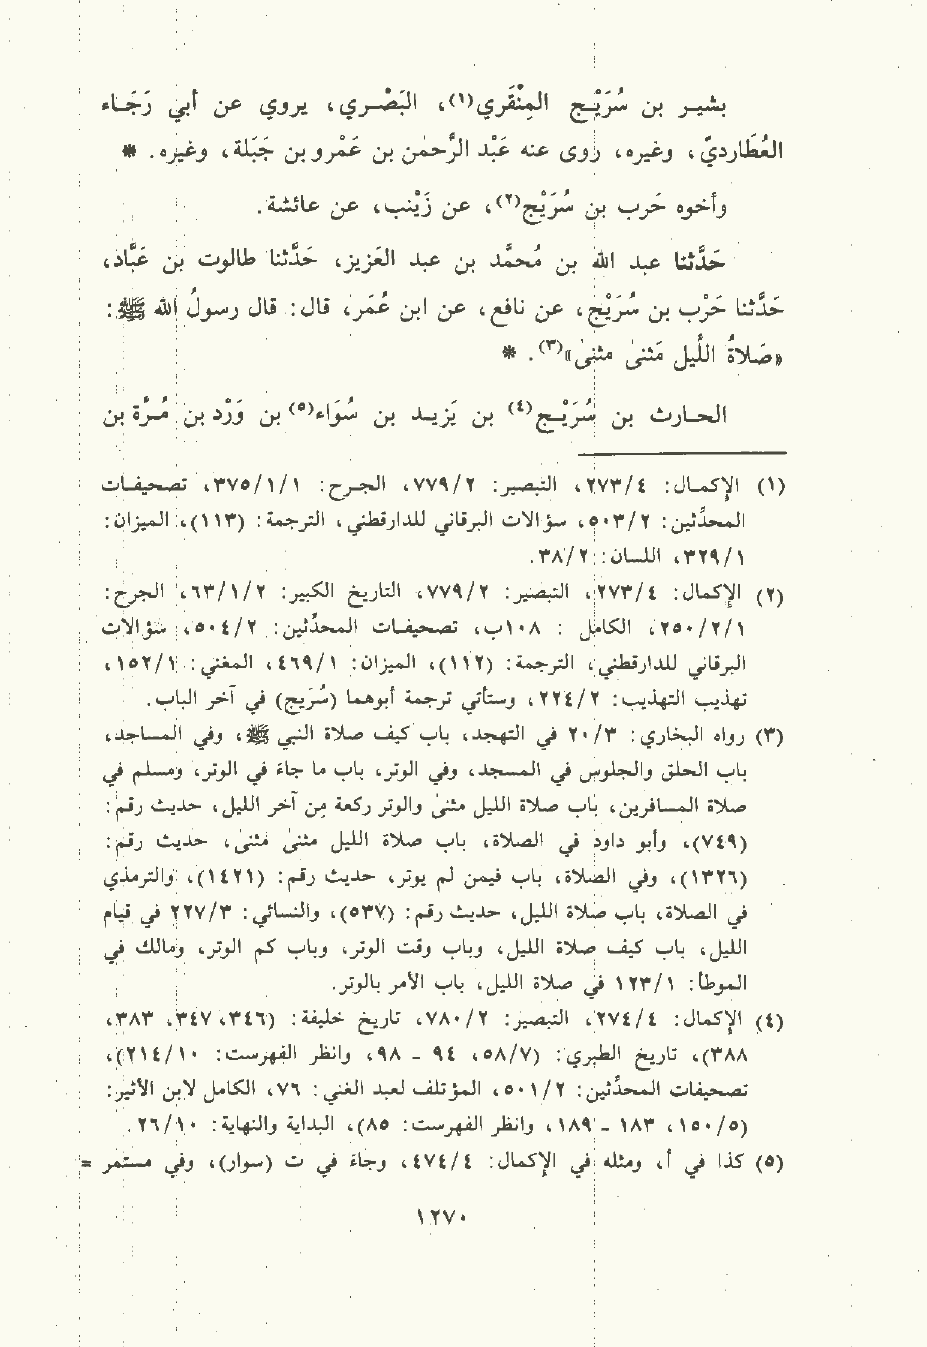 بشيـر بن سُرَيْـج المِنْقَري<sup>(١)</sup>، البَصْـري، يروي عن أبي رَجَـاء
العُطَارديّ، وغيره، روى عنه عَبْد الرَّحمٰن بن عَمْرو بن جَبَلة، وغيره. *
وأخوه حَرب بن سُرَيْج<sup>(٢)</sup>، عن زَيْنب، عن عائشة.
حَدَّثنا عبد الله بن مُحمَّد بن عبد العَزيز، حَدَّثنا طالوت بن عَبَّاد،
حَدَّثنا حَرْب بن سُرَيْج، عن نافع، عن ابن عُمَر، قال: قال رسولُ الله ﷺ:
«صَلاةُ اللَّيل مَثنىٰ مثنىٰ»<sup>(٣)</sup>. *
الحـارث بن سُرَيْـج<sup>(٤)</sup> بن يَزيـد بن سُوَاء<sup>(٥)</sup> بن وَرْد بن مُـرَّة بن
(١) الإكمـال: ٢٧٣/٤، التبصير: ٧٧٩/٢، الجـرح: ٣٧٥/١/١، تصحيفـات
المحدِّثين: ٥٠٣/٢، سؤالات البرقاني للدارقطني، الترجمة: (١١٣)، الميزان:
٣٢٩/١، اللسـان: ٣٨/٢.
(٢) الإكمال: ٢٧٣/٤، التبصير: ٧٧٩/٢، التاريخ الكبير: ٦٣/١/٢، الجرح:
٢٥٠/٢/١، الكامل: ١٠٨ب، تصحيفـات المحدِّثين: ٥٠٤/٢، سؤالات
البرقاني للدارقطني، الترجمة: (١١٢)، الميزان: ٤٦٩/١، المغني: ١٥٢/١،
تهذيب التهذيب: ٢٢٤/٢، وستأتي ترجمة أبوهما (سُريج) في آخر الباب.
(٣) رواه البخاري: ٢٠/٣ في التهجد، باب كيف صلاة النبي ﷺ، وفي المسـاجد،
باب الحلق والجلوس في المسـجد، وفي الوتر، باب ما جاء في الوتر، ومسلـم في
صلاة المسـافرين، باب صلاة الليل مثنىٰ والوتر ركعة مِن آخر الليل، حديث رقم:
(٧٤٩)، وأبو داود في الصلاة، باب صلاة الليل مثنىٰ مثنىٰ، حديث رقم:
(١٣٢٦)، وفي الصلاة، باب فيمن لم يوتر، حديث رقم: (١٤٢١)، والترمذي
في الصلاة، باب صلاة الليل، حديث رقم: (٥٣٧)، والنسائي: ٢٢٧/٣ في قيام
الليل، باب كيف صلاة الليل، وباب وقت الوتر، وباب كم الوتر، ومالك في
الموطأ: ١٢٣/١ في صلاة الليل، باب الأمر بالوتر.
(٤) الإكمـال: ٢٧٤/٤، التبصير: ٧٨٠/٢، تاريخ خليفة: (٣٤٦، ٣٤٧، ٣٨٣،
٣٨٨)، تاريخ الطبري: (٥٨/٧، ٩٤ - ٩٨، وانظر الفهرست: ٢١٤/١٠)،
تصحيفات المحدِّثين: ٥٠١/٢، المؤتلف لعبد الغني: ٧٦، الكامل لابن الأثير:
(١٥٠/٥، ١٨٣ - ١٨٩، وانظر الفهرست: ٨٥)، البداية والنهاية: ٢٦/١٠.
(٥) كذا في أ، ومثله في الإكمال: ٤٧٤/٤، وجاءَ في ت (سوار)، وفي مستمر =
١٢٧٠